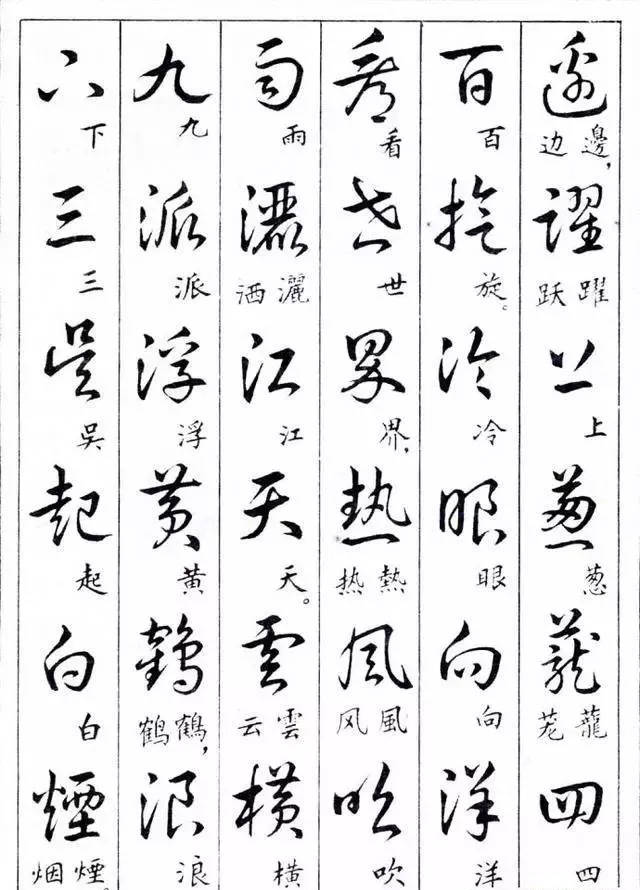 邊躍上葱蘢四
边邊，跃躍上葱茏蘢四
百旋冷眼向洋
百旋。冷眼向洋
看世界熱風吹
看世界，热熱风風吹
雨灑江天雲横
雨洒灑江天。云雲横
九派浮黄鶴浪
九派浮黄鹤鶴，浪
下三吳起白煙
下三吳起白烟煙。